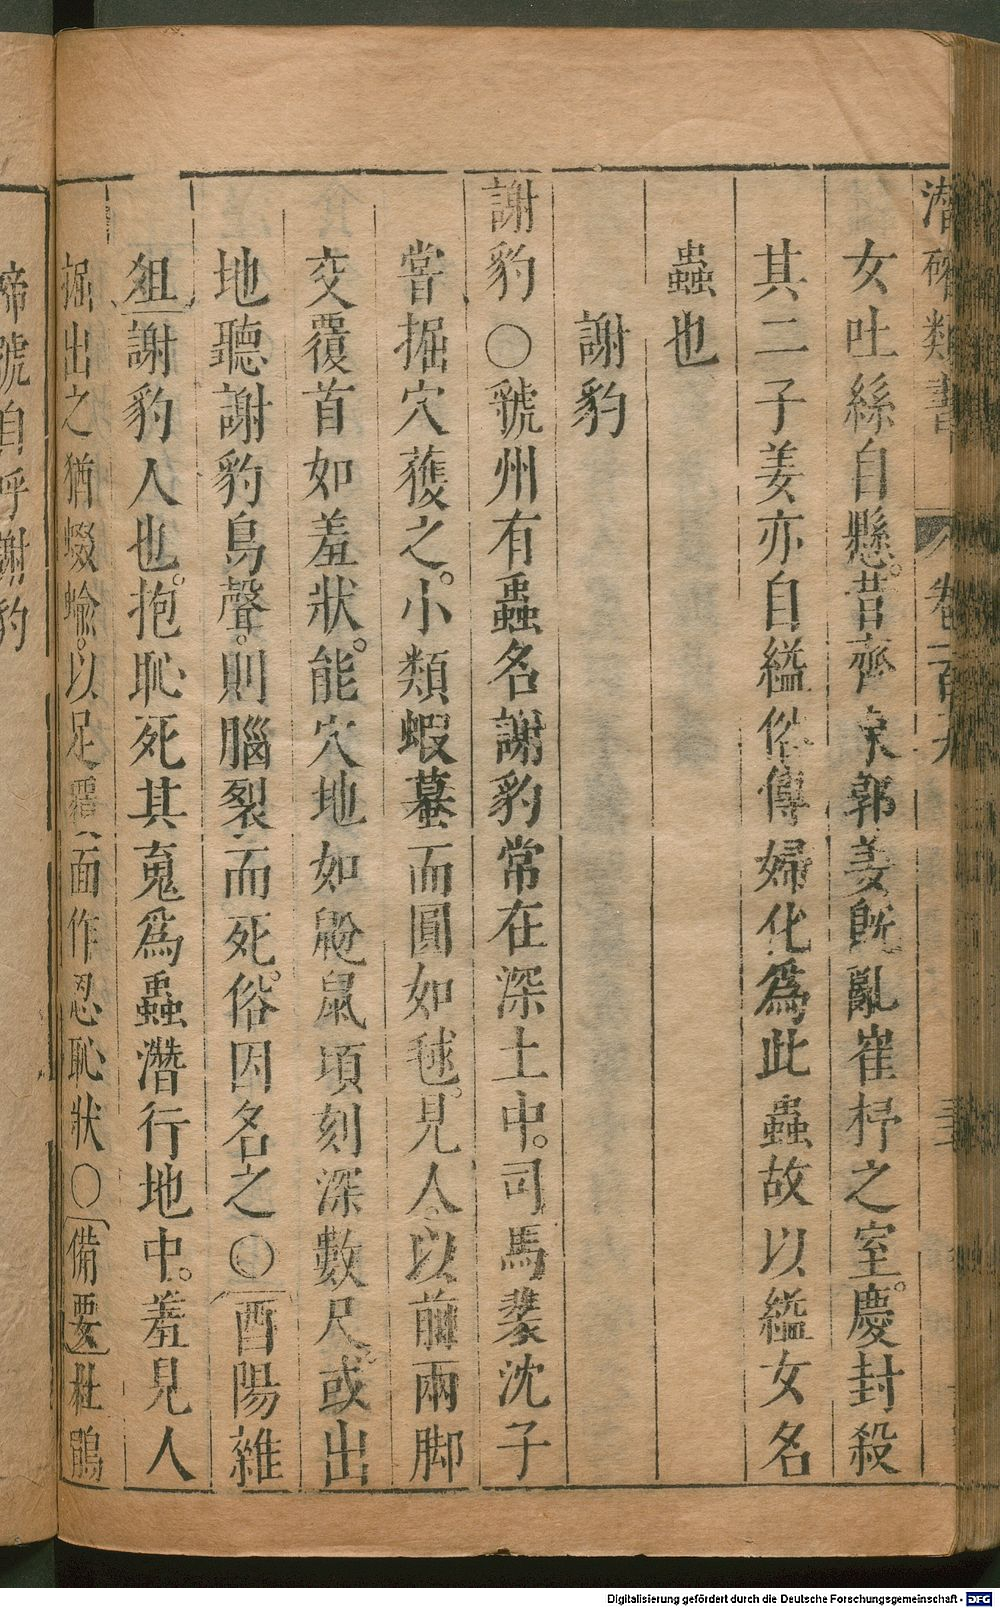 潛確類書 卷一百九
女吐絲自懸。昔齊東郭姜旣亂崔杼之室。慶封殺
其二子姜亦自縊俗傳婦化爲此蟲故以縊女名
蟲也
謝豹
謝豹○虢州有蟲名謝豹常在深土中。司馬裴沈子
嘗掘穴獲之。小類蝦蟇而圓如毬。見人以前兩脚
交覆首如羞狀。能穴地如鼢鼠頃刻深數尺。或出
地聽謝豹鳥聲。則腦裂而死。俗因名之○酉陽雜
俎謝豹人也。抱恥死其䰟爲蟲潛行地中。羞見人
掘出之猶蝃蝓。以足覆面作忍恥狀○備要杜鵑
啼號自呼謝豹
Digitalisierung gefördert durch die Deutsche Forschungsgemeinschaft - DFG